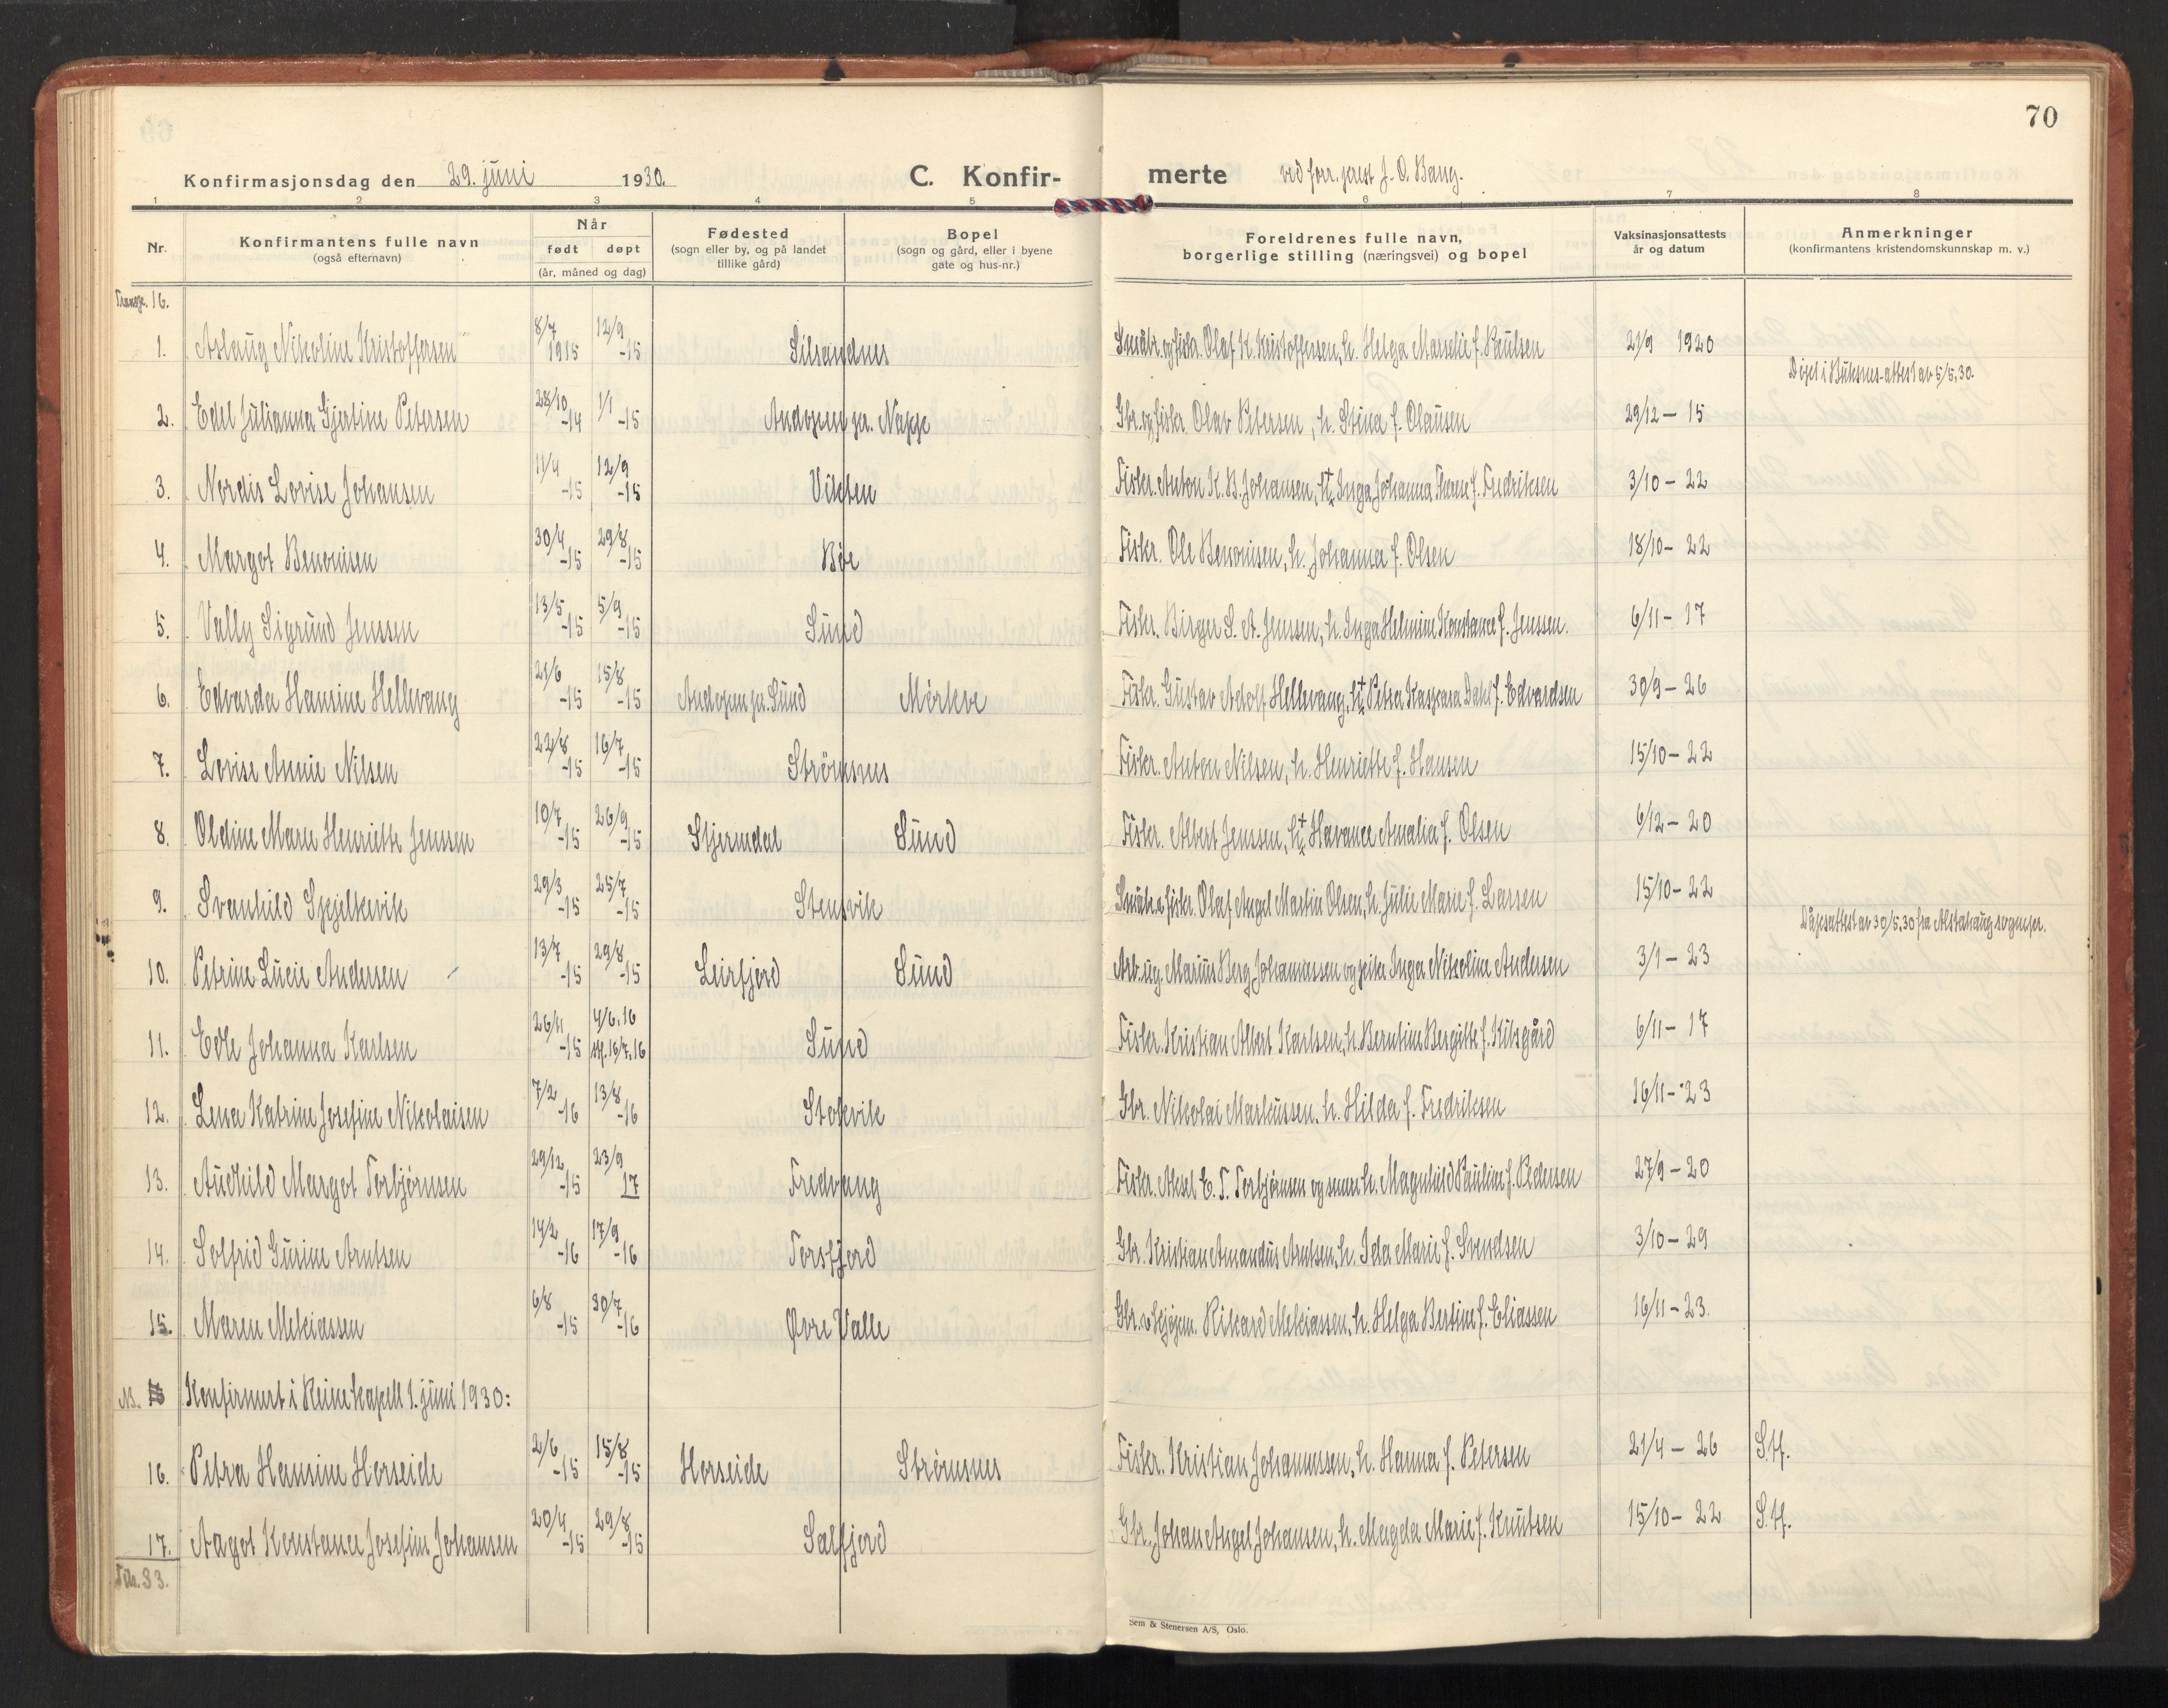 70
Konfirmasjonsdag den 29. juni 1930. C. Konfir- merte ved forr. prest J. O. Bang.
1 2 3 4 5 6 7 8
Nr. Konfirmantens fulle navn (også efternavn) Når født døpt (år, måned og dag) Fødested (sogn eller by, og på landet tillike gård) Bopel (sogn og gård, eller i byene gate og hus-nr.) Foreldrenes fulle navn, borgerlige stilling (næringsvei) og bopel Vaksinasjonsattests år og datum Anmerkninger (konfirmantens kristendomskunnskap m. v.)
Transp. 16.
1. Aslaug Nikoline Kristoffersen 8/7 1915 12/9 -15 Silsandnes Småbr. og fiskr. Olaf K. Kristoffersen, h. Helga Marselie f. Paulsen 21/9 1920
Døpt i Buksnes-attest av 5/5,30.
2. Edel Julianna Gjertine Petersen 28/10 -14 1/1 -15 Andopen pr. Napp Gbr. og fiskr. Olav Petersen, h. Stina f. Olausen 29/12 - 15
3. Nordis Lovise Johansen 11/4 -15 12/9 -15 Vikten Fiskr. Anton K. B. Johansen, h. Inga Johanna Therese f. Fredriksen 3/10 - 22
4. Margot Benonisen 30/4 -15 29/8 -15 Bøe Fiskr. Ole Benonisen, h. Johanna f. Olsen 18/10 - 22
5. Vally Sigrund Jenssen 13/5 -15 5/9 -15 Sund Fiskr. Birger S. A. Jenssen, h. Inga Helmine Konstance f. Jenssen. 6/11 - 17
6. Edvarda Hansine Hellevang 21/6 -15 15/8 -15 Andopen pr. Sund Mørkve Fiskr. Gustav Adolf Hellevang, h. Petra Kaspara Dahl f. Edvardsen 30/9 - 26
7. Lovise Annie Nilsen 22/8 -15 16/7 -15 Strømsnes Fiskr. Anton Nilsen, h. Henriette f. Hansen 15/10 - 22
8. Oldine Marie Henriette Jenssen 10/7 -15 26/9 -15 Stjerndal Sund Fiskr. Albert Jenssen, h. Havance Amalia f. Olsen 6/12 - 20
9. Svanhild Spjelkevik 29/3 -15 25/7 -15 Stensvik Småbr. fiskr. Olaf Angel Martin Olsen, h. Julie Marie f. Larsen 15/10 - 22
Dåpsattest av 30/5,30 fra Alstahaug sognepr.
10. Petrine Lucie Andersen 13/7 -15 29/8 -15 Leirfjord Sund Arb. ug. Marius Berg Johannessen og pike Inga Nikoline Andersen 3/1 - 23
11. Edle Johanna Karlsen 26/11 -15 4/6,16 16/7,16 Sund Fiskr. Kristian Albert Karlsen, h. Berntine Bergitte f. Kilsgård 6/11 - 17
12. Lena Katrine Josefine Nikolaisen 7/2 -16 13/8 -16 Stokvik Gbr. Nikolai Markussen, h. Hilda f. Fredriksen 16/11 - 23
13. Audhild Margot Torbjørnsen 29/12 -15 23/9 17 Fredvang Fiskr. Aksel E. T. Torbjørnsen og senere h. Magnhild Pauline f. Pedersen 27/9 - 20
14. Solfrid Gurine Arntsen 14/2 -16 17/9 -16 Torsfjord Gbr. Kristian Amandus Arntsen, h. Ida Marie f. Svendsen 3/10 - 29
15. Maren Mekiassen 6/8 -15 30/7 -16 Øvre Valle Gbr. Rikard Mekiassen, h. Helga Bertine f. Eliassen 16/11 - 23.
Konfirmert i Reine kapell 1. juni 1930:
16. Petra Hansine Horseide 2/6 -15 15/8 -15 Horseide Strømsnes Fiskr. Kristian Johannessen, h. Hanna f. Petersen 21/4 - 26 S.H.
17. Aagot Konstance Josefine Johansen 20/4 -15 29/8 -15 Salfjord Gbr. Johan Angel Johansen, h. Magda Marie f. Knutsen 15/10 - 22 S.H.
Tils. 33.
Sem & Stenersen A/S, Oslo.